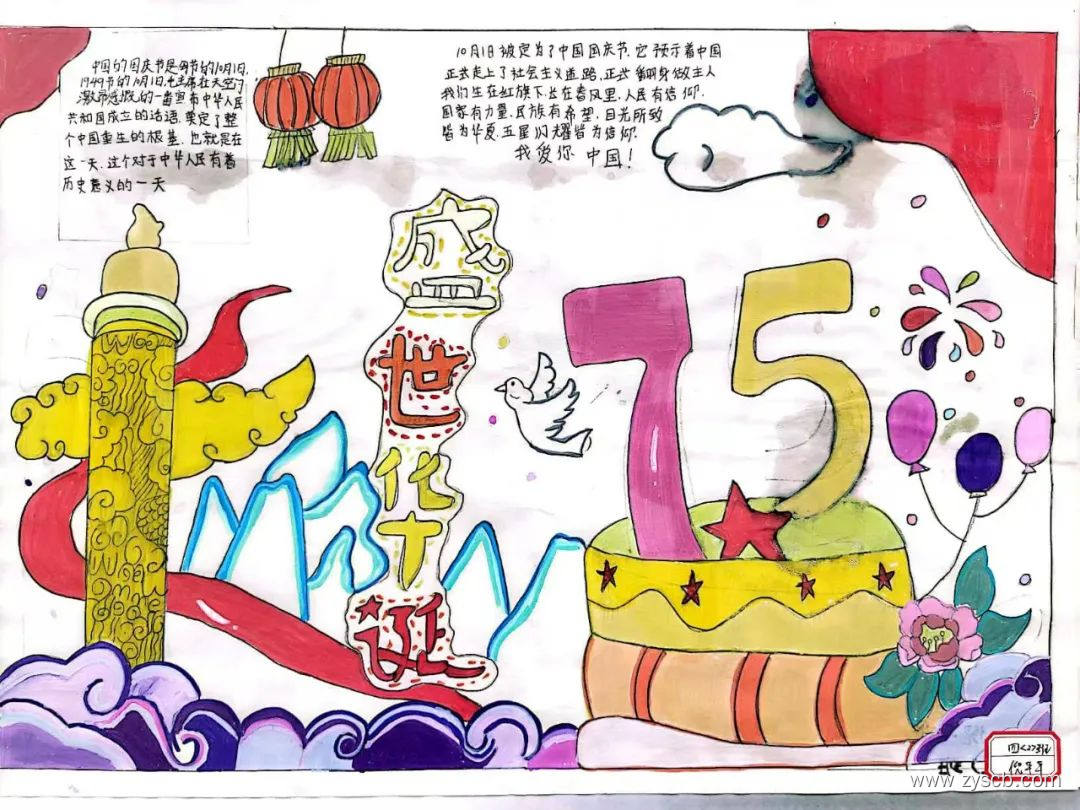 中国的国庆节是每年的10月1日,
1949年的10月1日,毛主席在天安门
激昂慷慨的一番宣布中华人民
共和国成立的话语,奠定了整
个中国重生的根基,也就是在
这一天,这个对于中华人民有着
历史意义的一天
10月1日被定为了中国国庆节,它预示着中国
正式走上了社会主义道路,正式翻身做主人
我们生在红旗下,长在春风里,人民有信仰,
国家有力量,民族有希望,目光所致
皆为华夏,五星闪耀皆为信仰.
我爱你 中国!
盛世华诞
75
www.zyscb.com